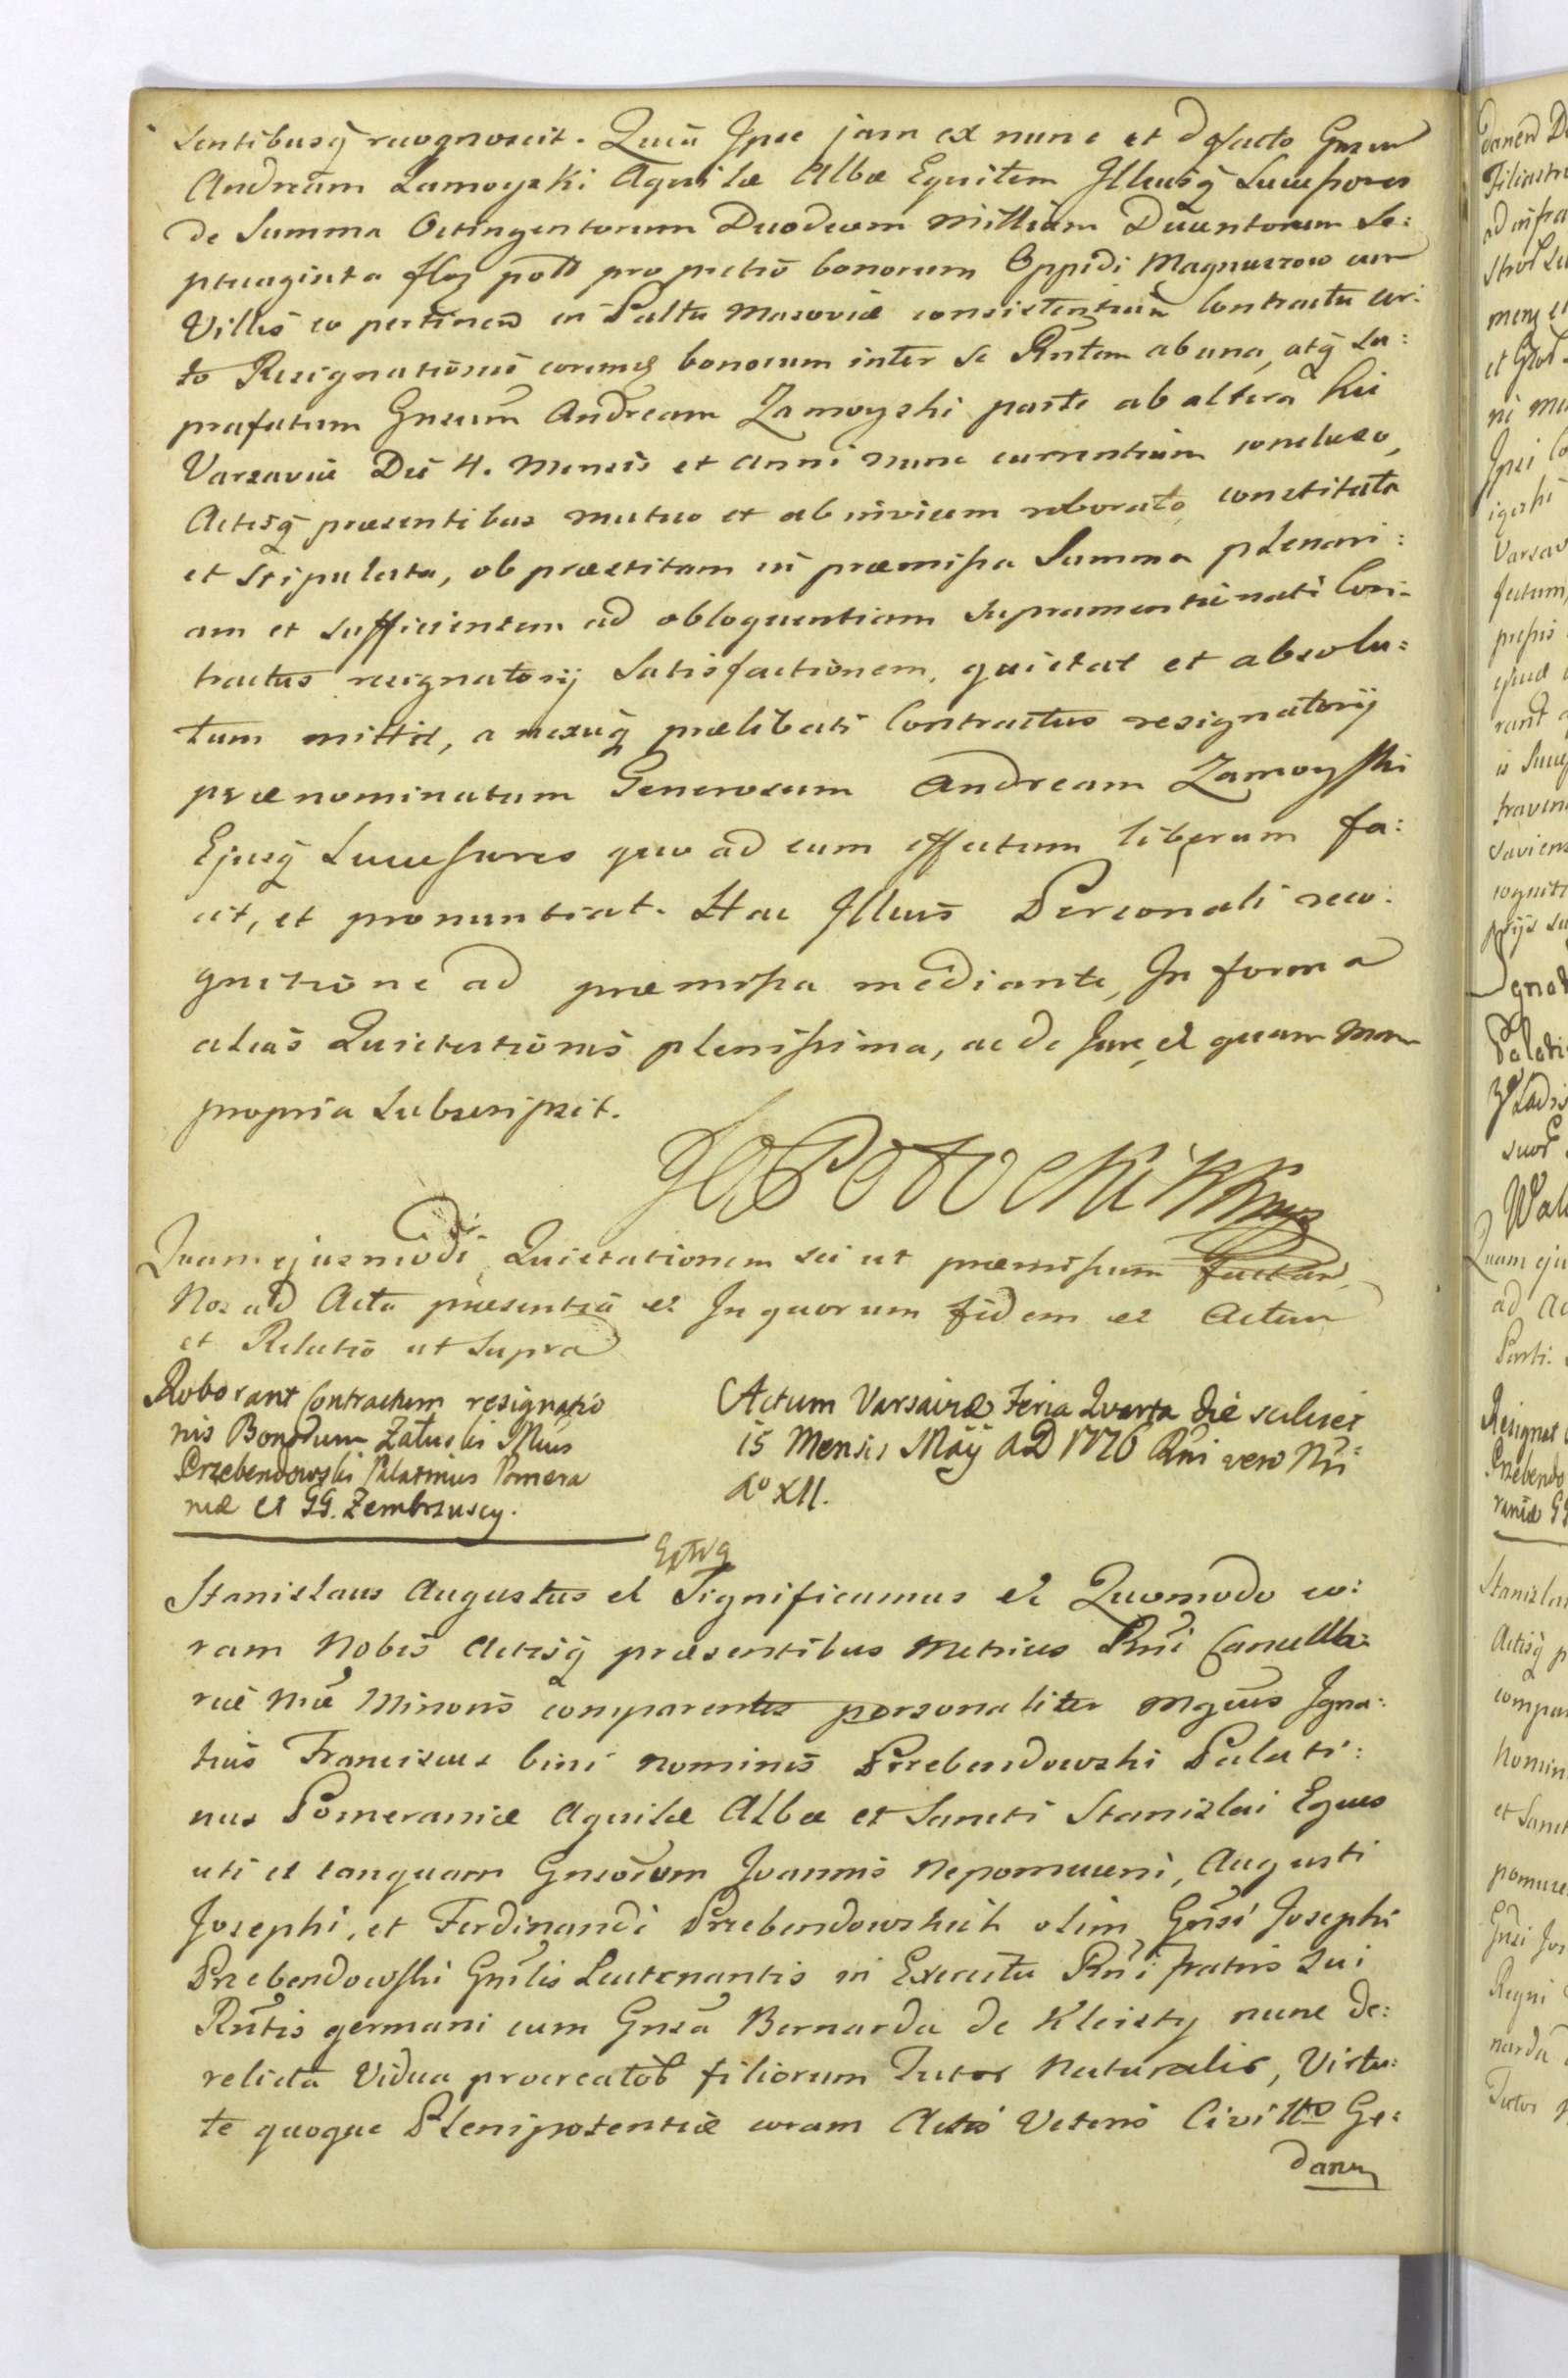 sentibusq̃ recognoscit. Quia Ipse jam ex nunc et de facto Gnsum
Andream Zamoyski Aquilæ Albæ Equitem Illiusq̃ Successores
de Summa Octingentorum Duodecim Millium Ducentorum Se:
ptuaginta flor poll pro pretio bonorum Oppidi Magnuszow cum
Villis eo pertinen in Paltu Masoviæ consistentium Contractu cer:
to Resignationis eorumq bonorum inter se Rntem ab una, atq̃ su:
prafatum Gnsum Andream Zamoyski parte ab altera hic
Varsaviæ Die 4. Mensis et Anni nunc currentium concluso,
Actisq̃ præsentibus mutuo et ab invicem roborato, constituta
et stipulata, ob præstitam in præmissa Summa plenari:
am et sufficientem ad obloquentiam supramentionati Con:
tractus resignatorij Satisfactionem, quietat et absolu:
tum mittit, a nexuq̃ prælibati Contractus resignatorij
prænominatum Generosum Andream Zamoyski
Ejusq̃ Successores quo ad eum effectum liberum fa:
cit, et pronuntiat. Hac Illius Personali reco:
gnitione ad præmissa mediante, In forma
alias Quietationis plenissima, ac de Jure, et quam Manu
propria Subscripsit.
Potocki
Quam ejusmodi Quietationem sic ut præmissum factam,
Nos ad Acta præsentia et In quorum fidem et Actum
et Relatio ut Supra
Roborant Contractum resignatio
nis Bonorum Zatuski Mius
Przebendowski Palatinus Pomera
niæ et GG. Zembrzuscy.
Actum Varsaviæ Feria Quarta die scilicet
15 Mensis Maij AD 1776 Rni vero Nri
Aº XII.
Stanislaus Augustus et Significamus et Quomodo co:
ram Nobis Actisq̃ præsentibus Metrices Rni Cancella:
riæ Nræ Minoris comparentes personaliter Mgcus Igna:
tius Franciscus bini nominis Przebendowski Palati:
nus Pomeraniæ Aquilæ Albæ et Sancti Stanislai Eques
uti et tanquam Gnsorum Joannis Nepomuceni, Augusti
Josephi, et Ferdinandi Przebendowskich olim Gnsi Josephi
Przebendowski Gnrlis Leutenantis in Exercitu Rni fratris sui
Rntis germani cum Gnsa Bernarda de Kleisty nunc de:
relicta Vidua procreator filiorum Tutor Naturalis, Virtu:
te quoque Plenipotentiæ coram Actis Veteris Civittis Ge:
danen